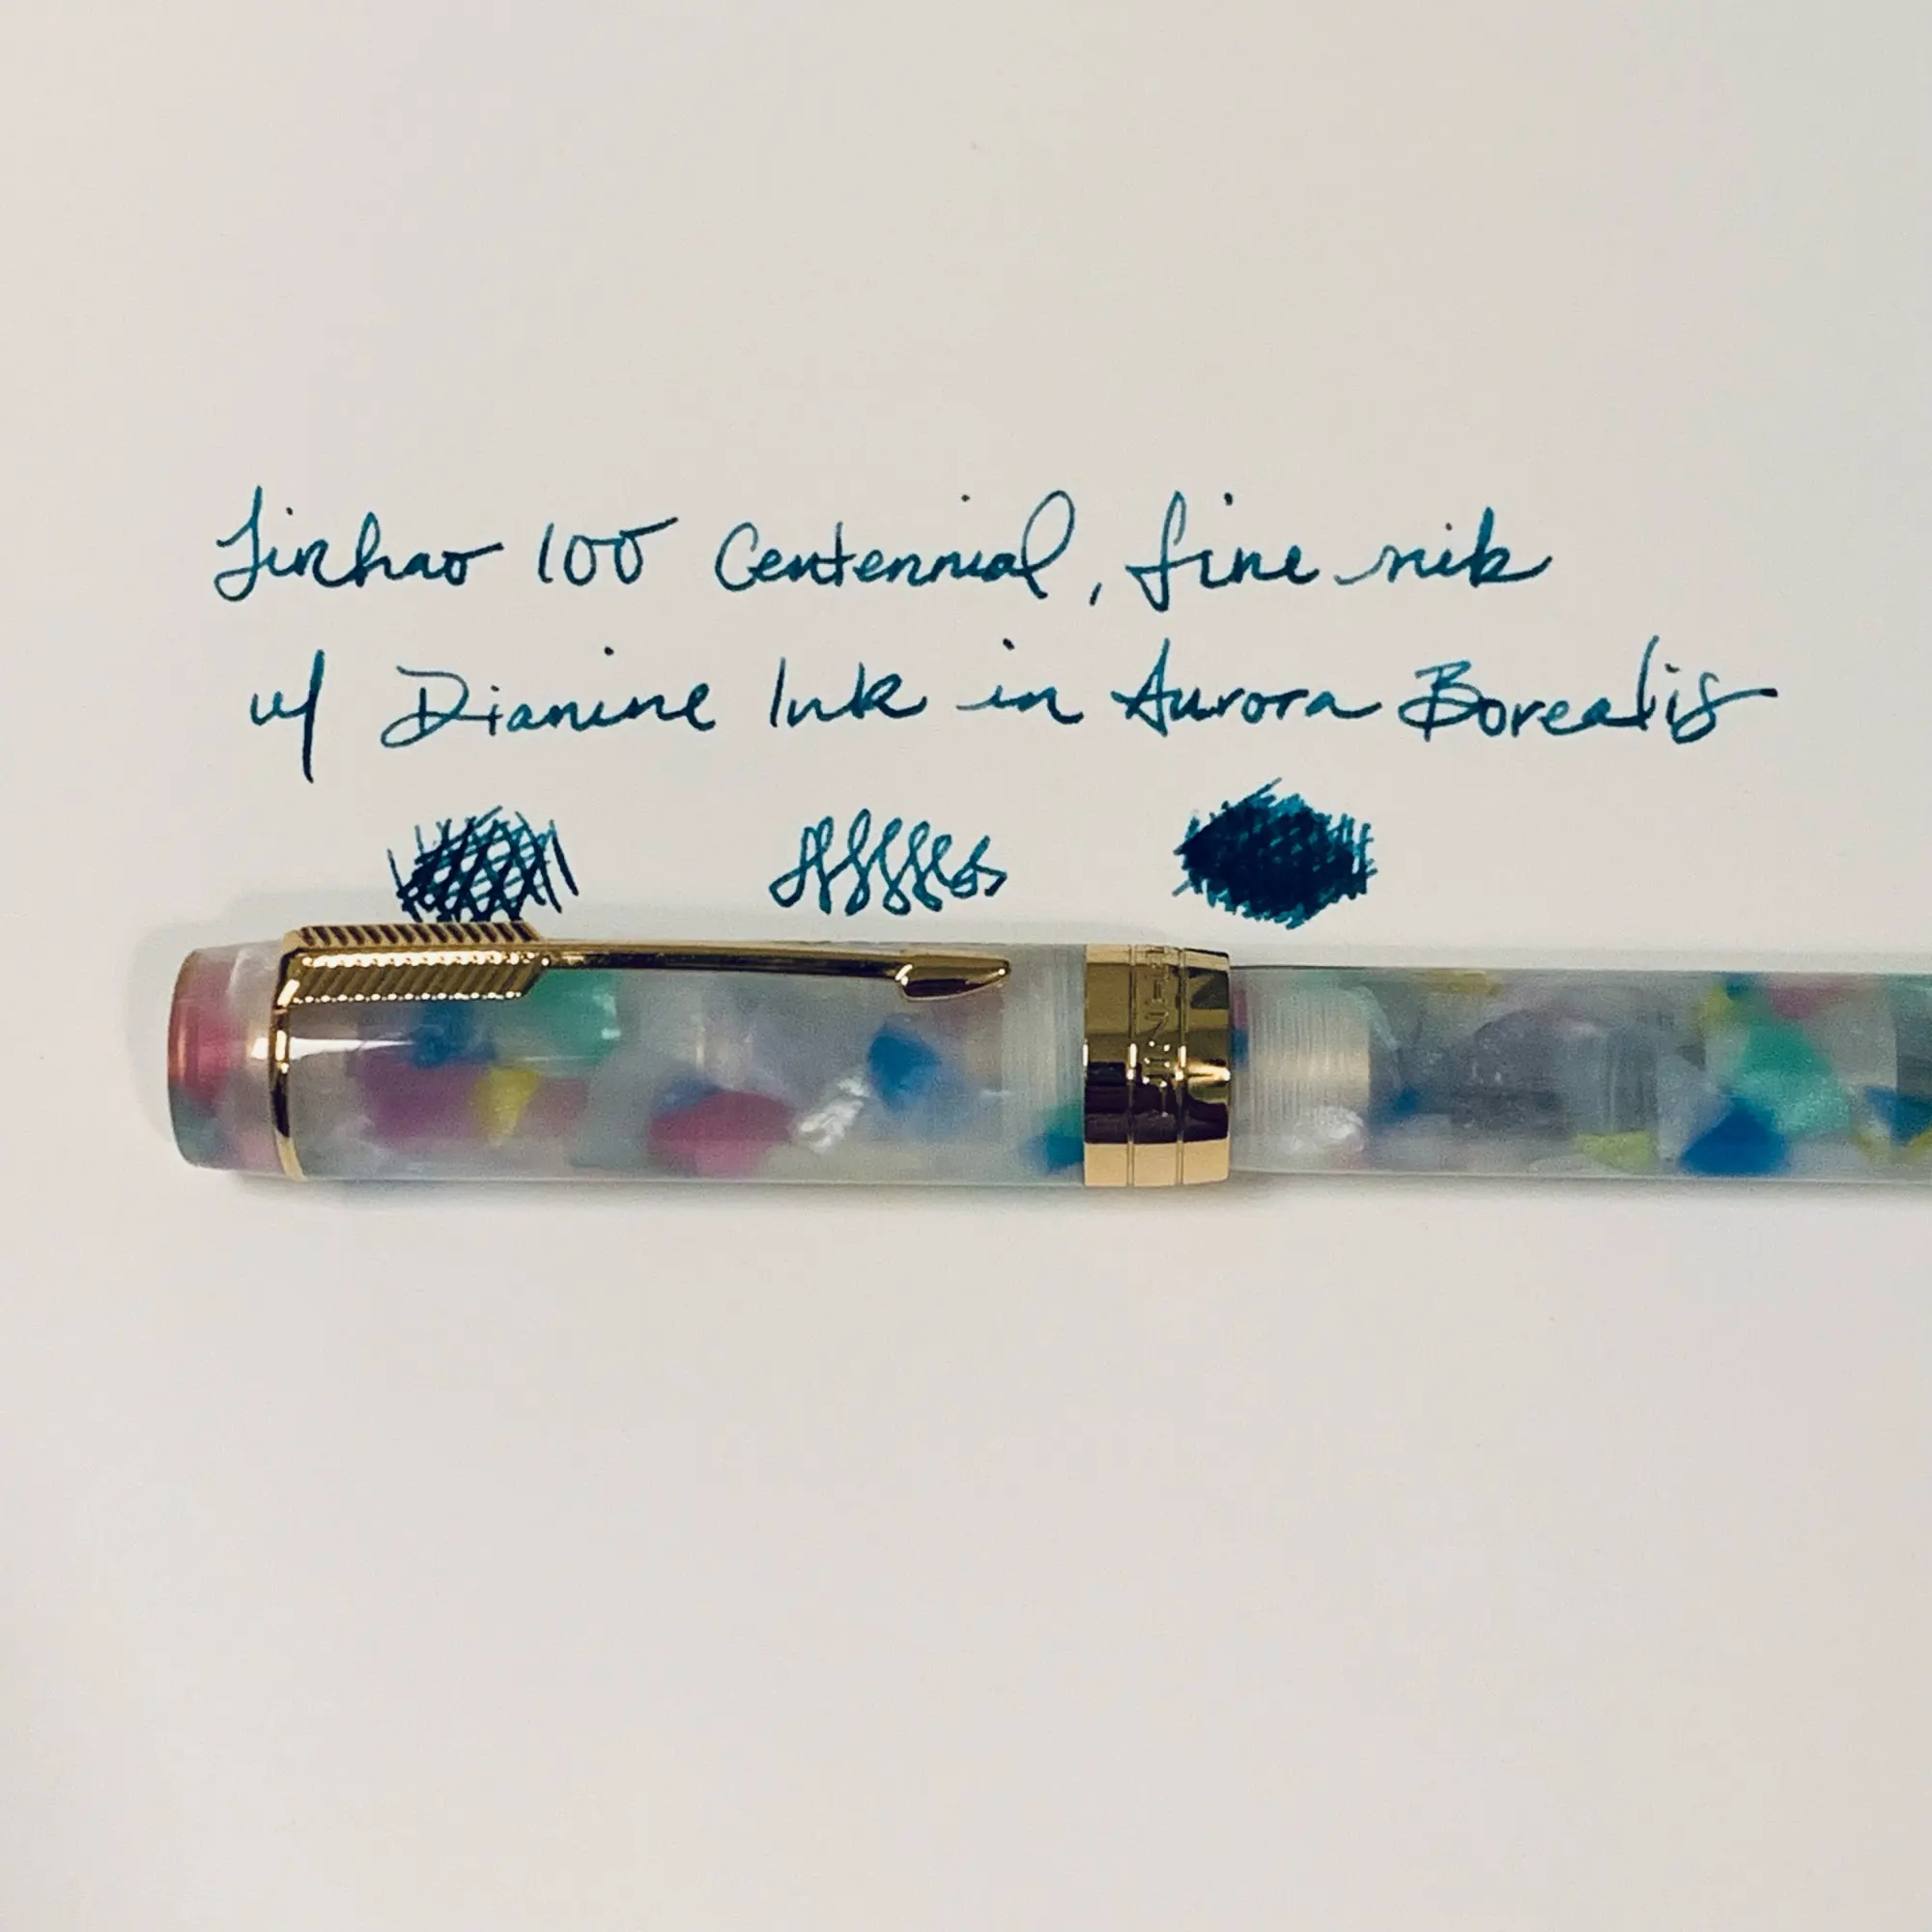 Jinhao 100 Centennial, fine nib
w/ Diamine Ink in Aurora Borealis
JINHAO